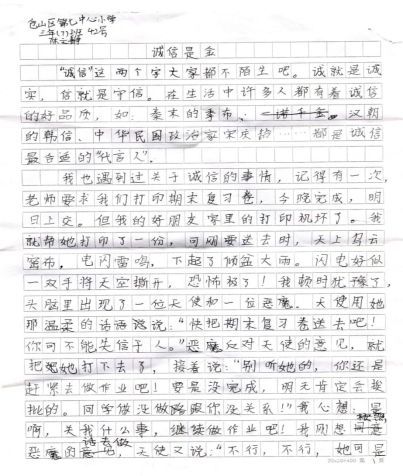 仓山区第七中心小学
三年(7)班 42号
诚信是金
“诚信”这两个字大家都不陌生吧。诚就是诚
实，信就是守信。在生活中许多人都有着诚信
的好品质，如：秦末的季布、一诺千金。汉朝
的韩信、中华民国政治家宋庆龄……都是诚信
最合适的“代言人”。
我也遇到过关于诚信的事情，记得有一次，
老师要求我们打印期末复习卷，今晚完成，明
日上交。但我的好朋友家里的打印机坏了。我
就帮她打印了一份，可刚要送去时，天上乌云
密布，电闪雷鸣，下起了倾盆大雨。闪电好似
一双手将天空撕开，恐怖极了！我顿时犹豫了，
头脑里出现了一位天使和一位恶魔。天使用她
那温柔的话语说：“快把期末复习卷送去吧！
你可不能失信于人。”恶魔反对天使的意见，就
把她打下去了，接着说：“别听她的，你还是
赶紧去做作业吧！要是没完成，明天肯定会挨
批的。同学做没做跟你没关系！”我心想：是
啊，关我什么事，继续做作业吧！我刚想按照
恶魔的话去做，天使又说：“不行，不行，她可是